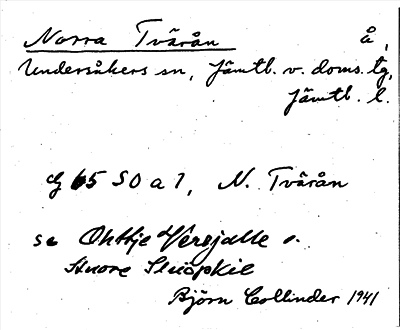 Norra Tvärån å,
Undersåkers sn, Jämtl. v. doms. tg,
Jämtl. l.
G 65 SO a 1, N. Tvärån
se Ohttje Verejalle o.
Anore Sluöpkie
Björn Collinder 1941